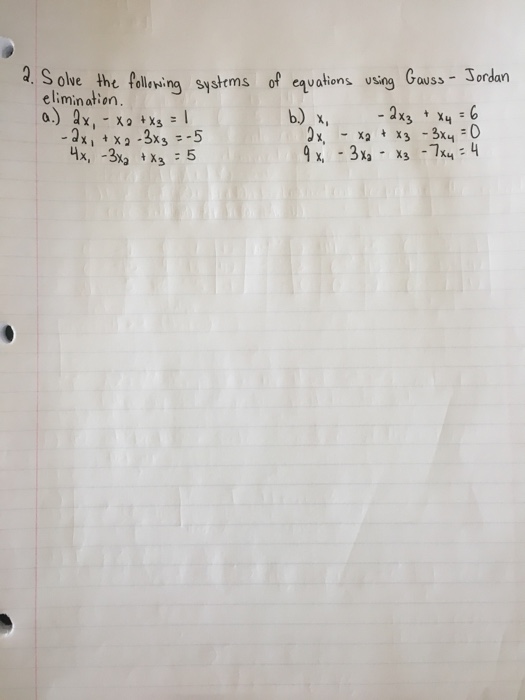 2. Solve the following systems of equations using Gauss-Jordan
elimination.
a.) 2x₁ - x₂ + x₃ = 1
-2x₁ + x₂ - 3x₃ = -5
4x₁ - 3x₂ + x₃ = 5
b.) x₁ - 2x₃ + x₄ = 6
2x₁ - x₂ + x₃ - 3x₄ = 0
9x₁ - 3x₂ - x₃ - 7x₄ = 4